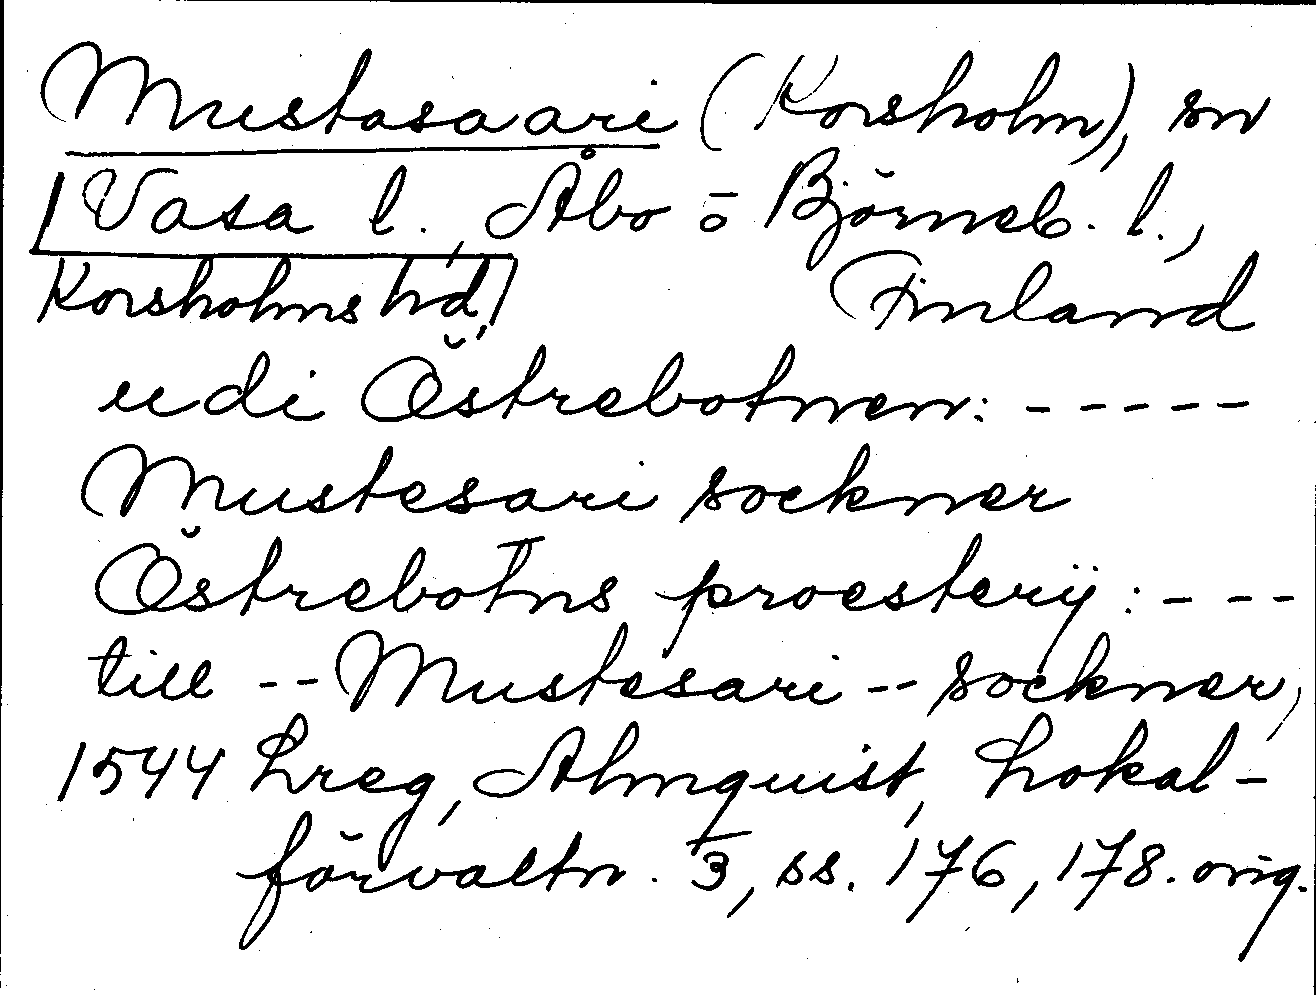 Mustasaari (Korsholm), sn
Vasa l., Åbo o Björneb. l.,
Korsholms hd, Finland
udi Östrebotnen: - - - - -
Mustesari sockner
Östrebotns proesterij: - - -
till -- Mustesari -- sockner,
1544 Lreg, Almquist, Lokal-
förvaltn. 3, ss. 176, 178. orig.